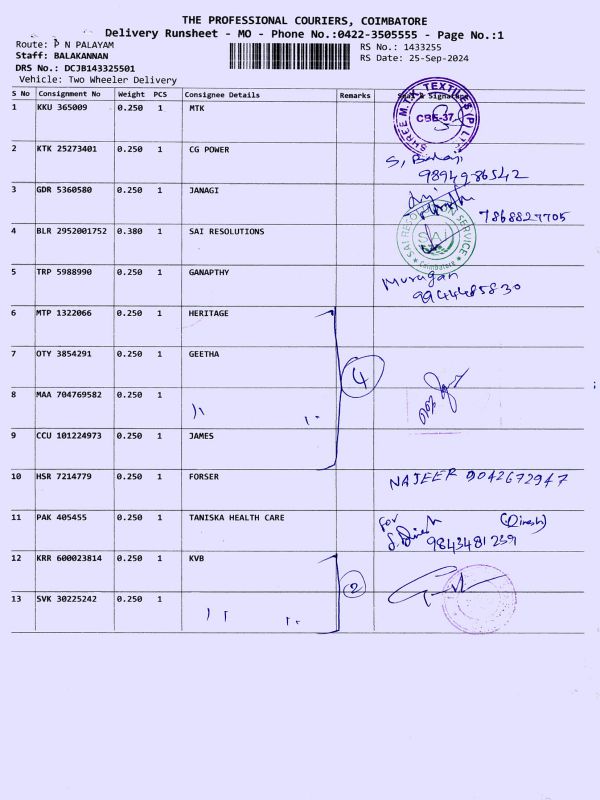 THE PROFESSIONAL COURIERS, COIMBATORE
Delivery Runsheet - MO - Phone No.:0422-3505555 - Page No.:1
Route: P N PALAYAM
RS No.: 1433255
Staff: BALAKANNAN
RS Date: 25-Sep-2024
DRS No.: DCJB143325501
Vehicle: Two Wheeler Delivery
S No Consignment No Weight PCS Consignee Details Remarks Seal & Signature
1 KKU 365009 0.250 1 MTK
SHREE M.T.K TEXTILES (P) LTD
CBE-37
2 KTK 25273401 0.250 1 CG POWER
S, Balaji
9894986542
3 GDR 5360580 0.250 1 JANAGI
7868827705
4 BLR 2952001752 0.380 1 SAI RESOLUTIONS
SAI RESOLUTION SERVICE
SAI
Coimbatore
5 TRP 5988990 0.250 1 GANAPTHY
Murugan
9944485830
6 MTP 1322066 0.250 1 HERITAGE
7 OTY 3854291 0.250 1 GEETHA
4
8 MAA 704769582 0.250 1
9 CCU 101224973 0.250 1 JAMES
10 HSR 7214779 0.250 1 FORSER NAJEER 9042672947
11 PAK 405455 0.250 1 TANISKA HEALTH CARE
for (Dinesh)
S. Dinesh
9843481239
12 KRR 600023814 0.250 1 KVB
2
13 SVK 30225242 0.250 1